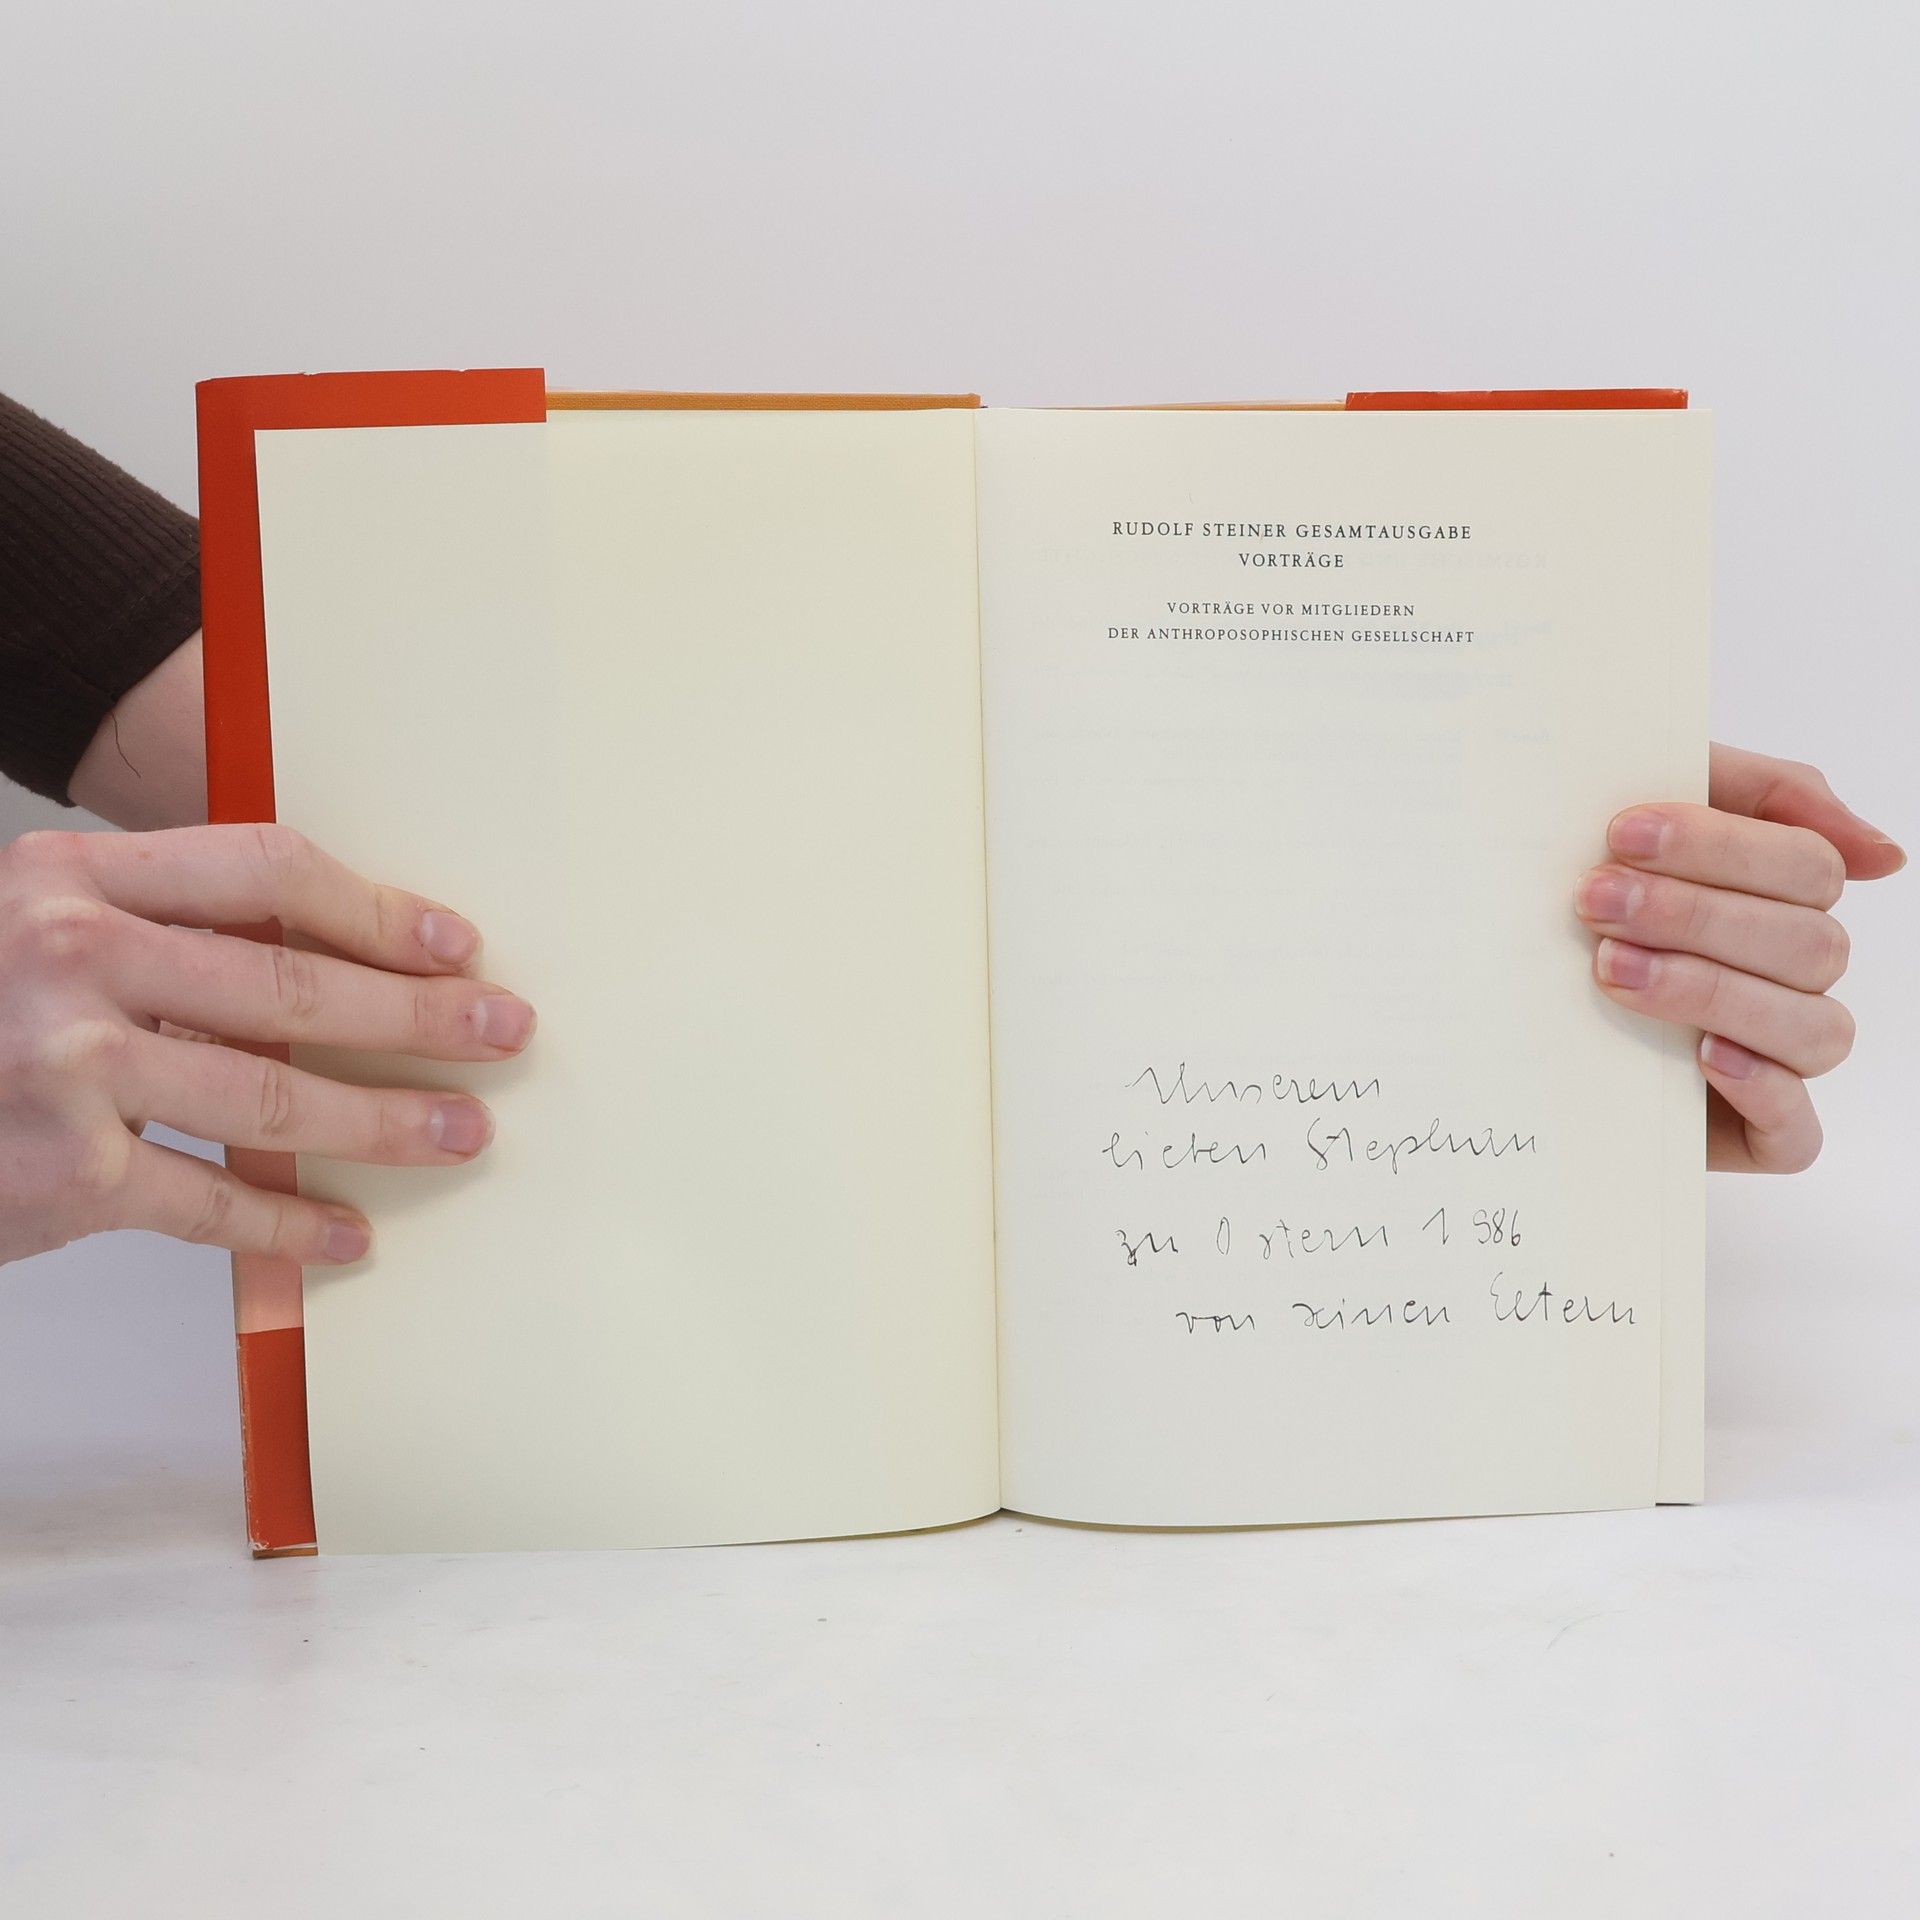 RUDOLF STEINER GESAMTAUSGABE
VORTRÄGE
VORTRÄGE VOR MITGLIEDERN
DER ANTHROPOSOPHISCHEN GESELLSCHAFT
Unserem
lieben Stephan
zu Ostern 1986
von seinen Eltern